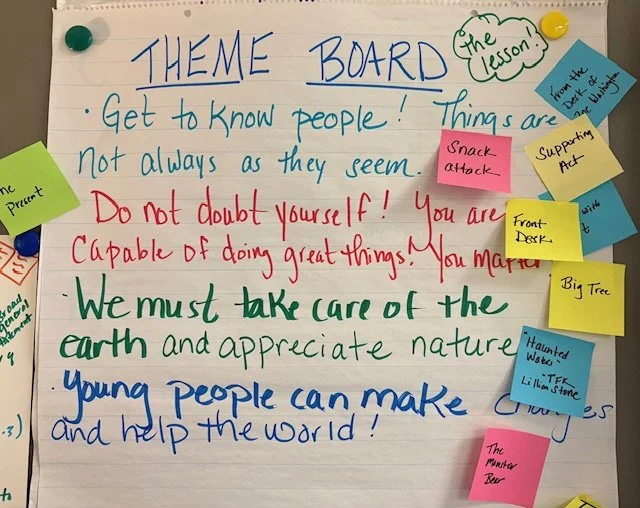 THEME BOARD
the
lesson!
• Get to know people! Things are
not always as they seem.
Do not doubt yourself! You are
Capable of doing great things! You matter
• We must take care of the
earth and appreciate nature
• Young people can make changes
and help the world!
Present
From the
Desk of
Washington
Supporting
Act
Snack
attack
with
Front
Desk
Big Tree
"Haunted
Water"
-TFK
Lillian Stone
The
Monster
Bear
Broad
general
statement